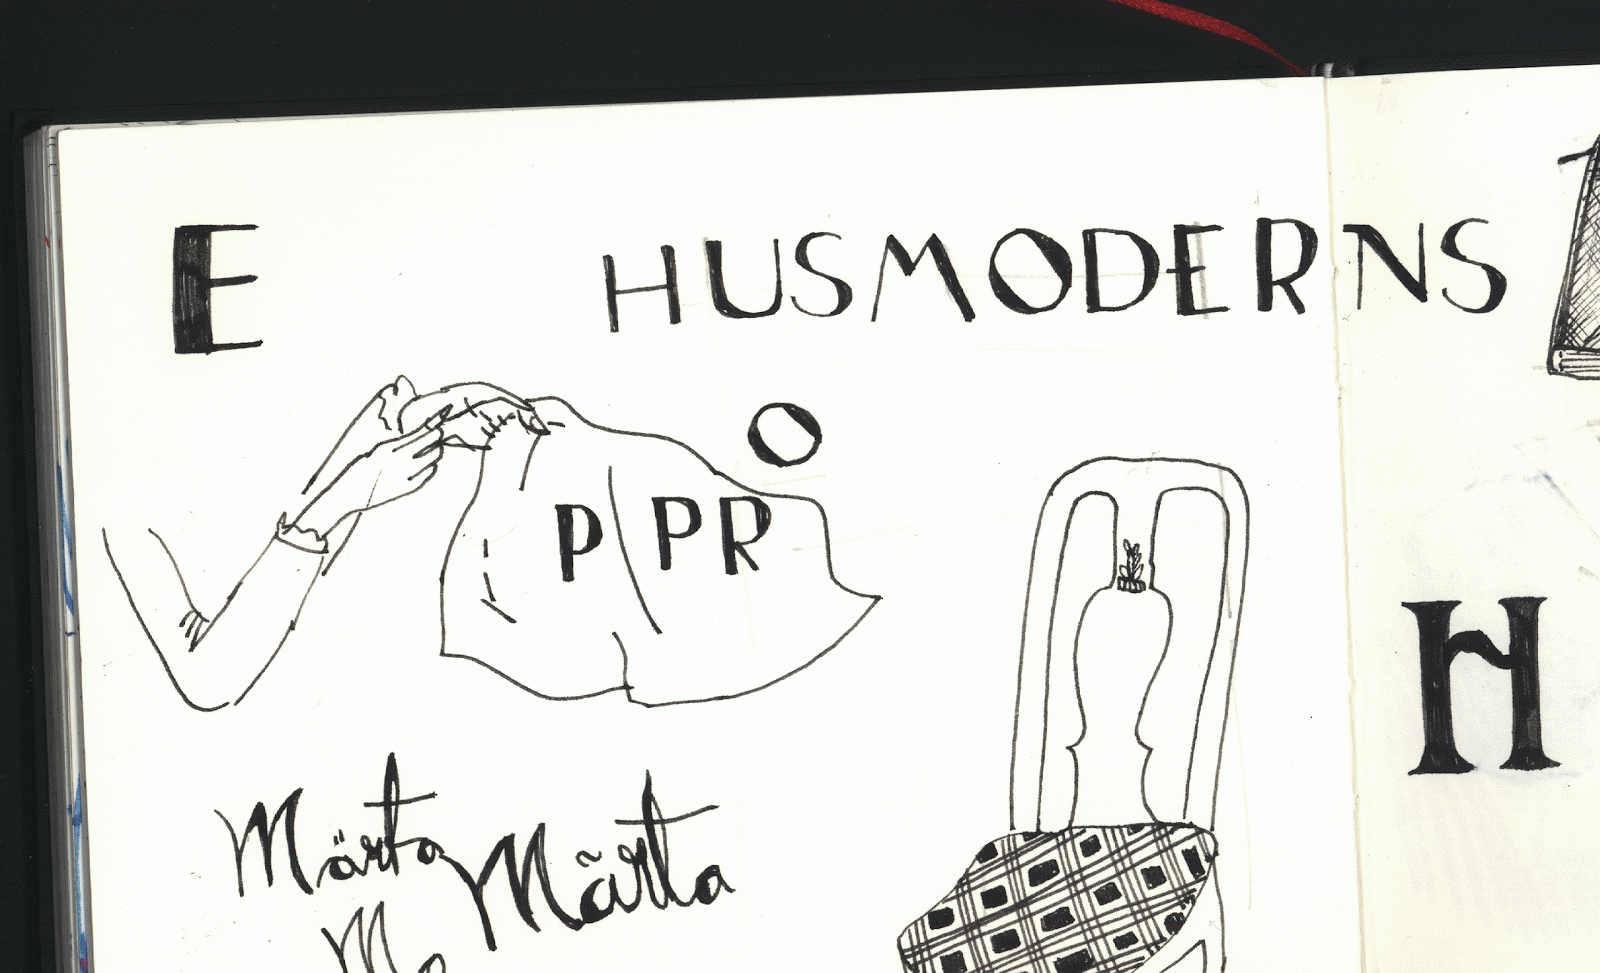 E
HUSMODERNS
O
P PR
H
Märta
Mãrta
Ma